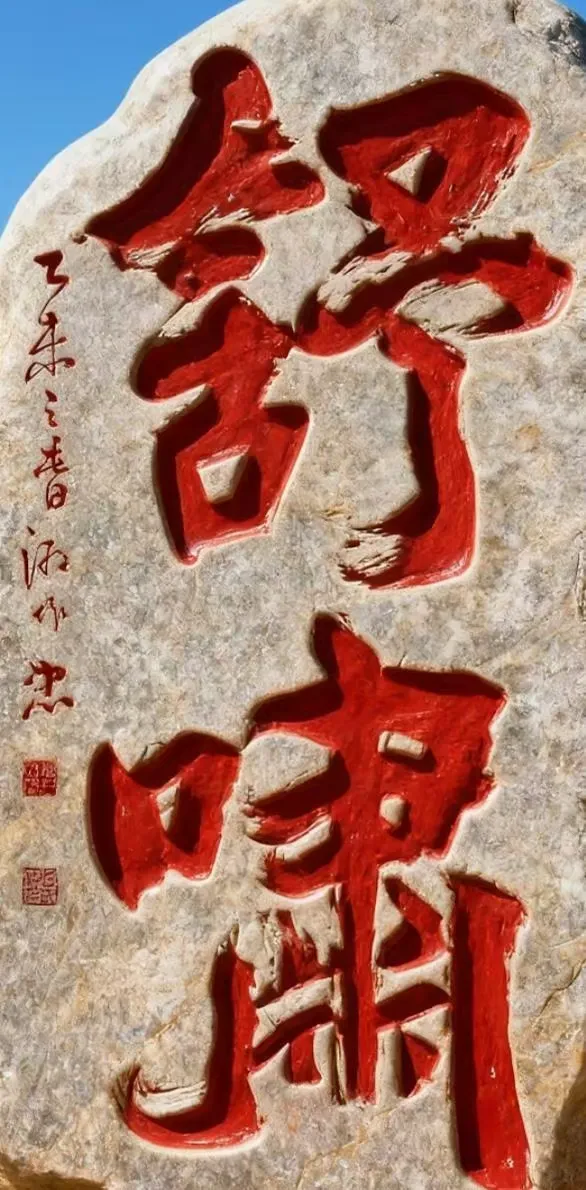 舒啸
乙未之春